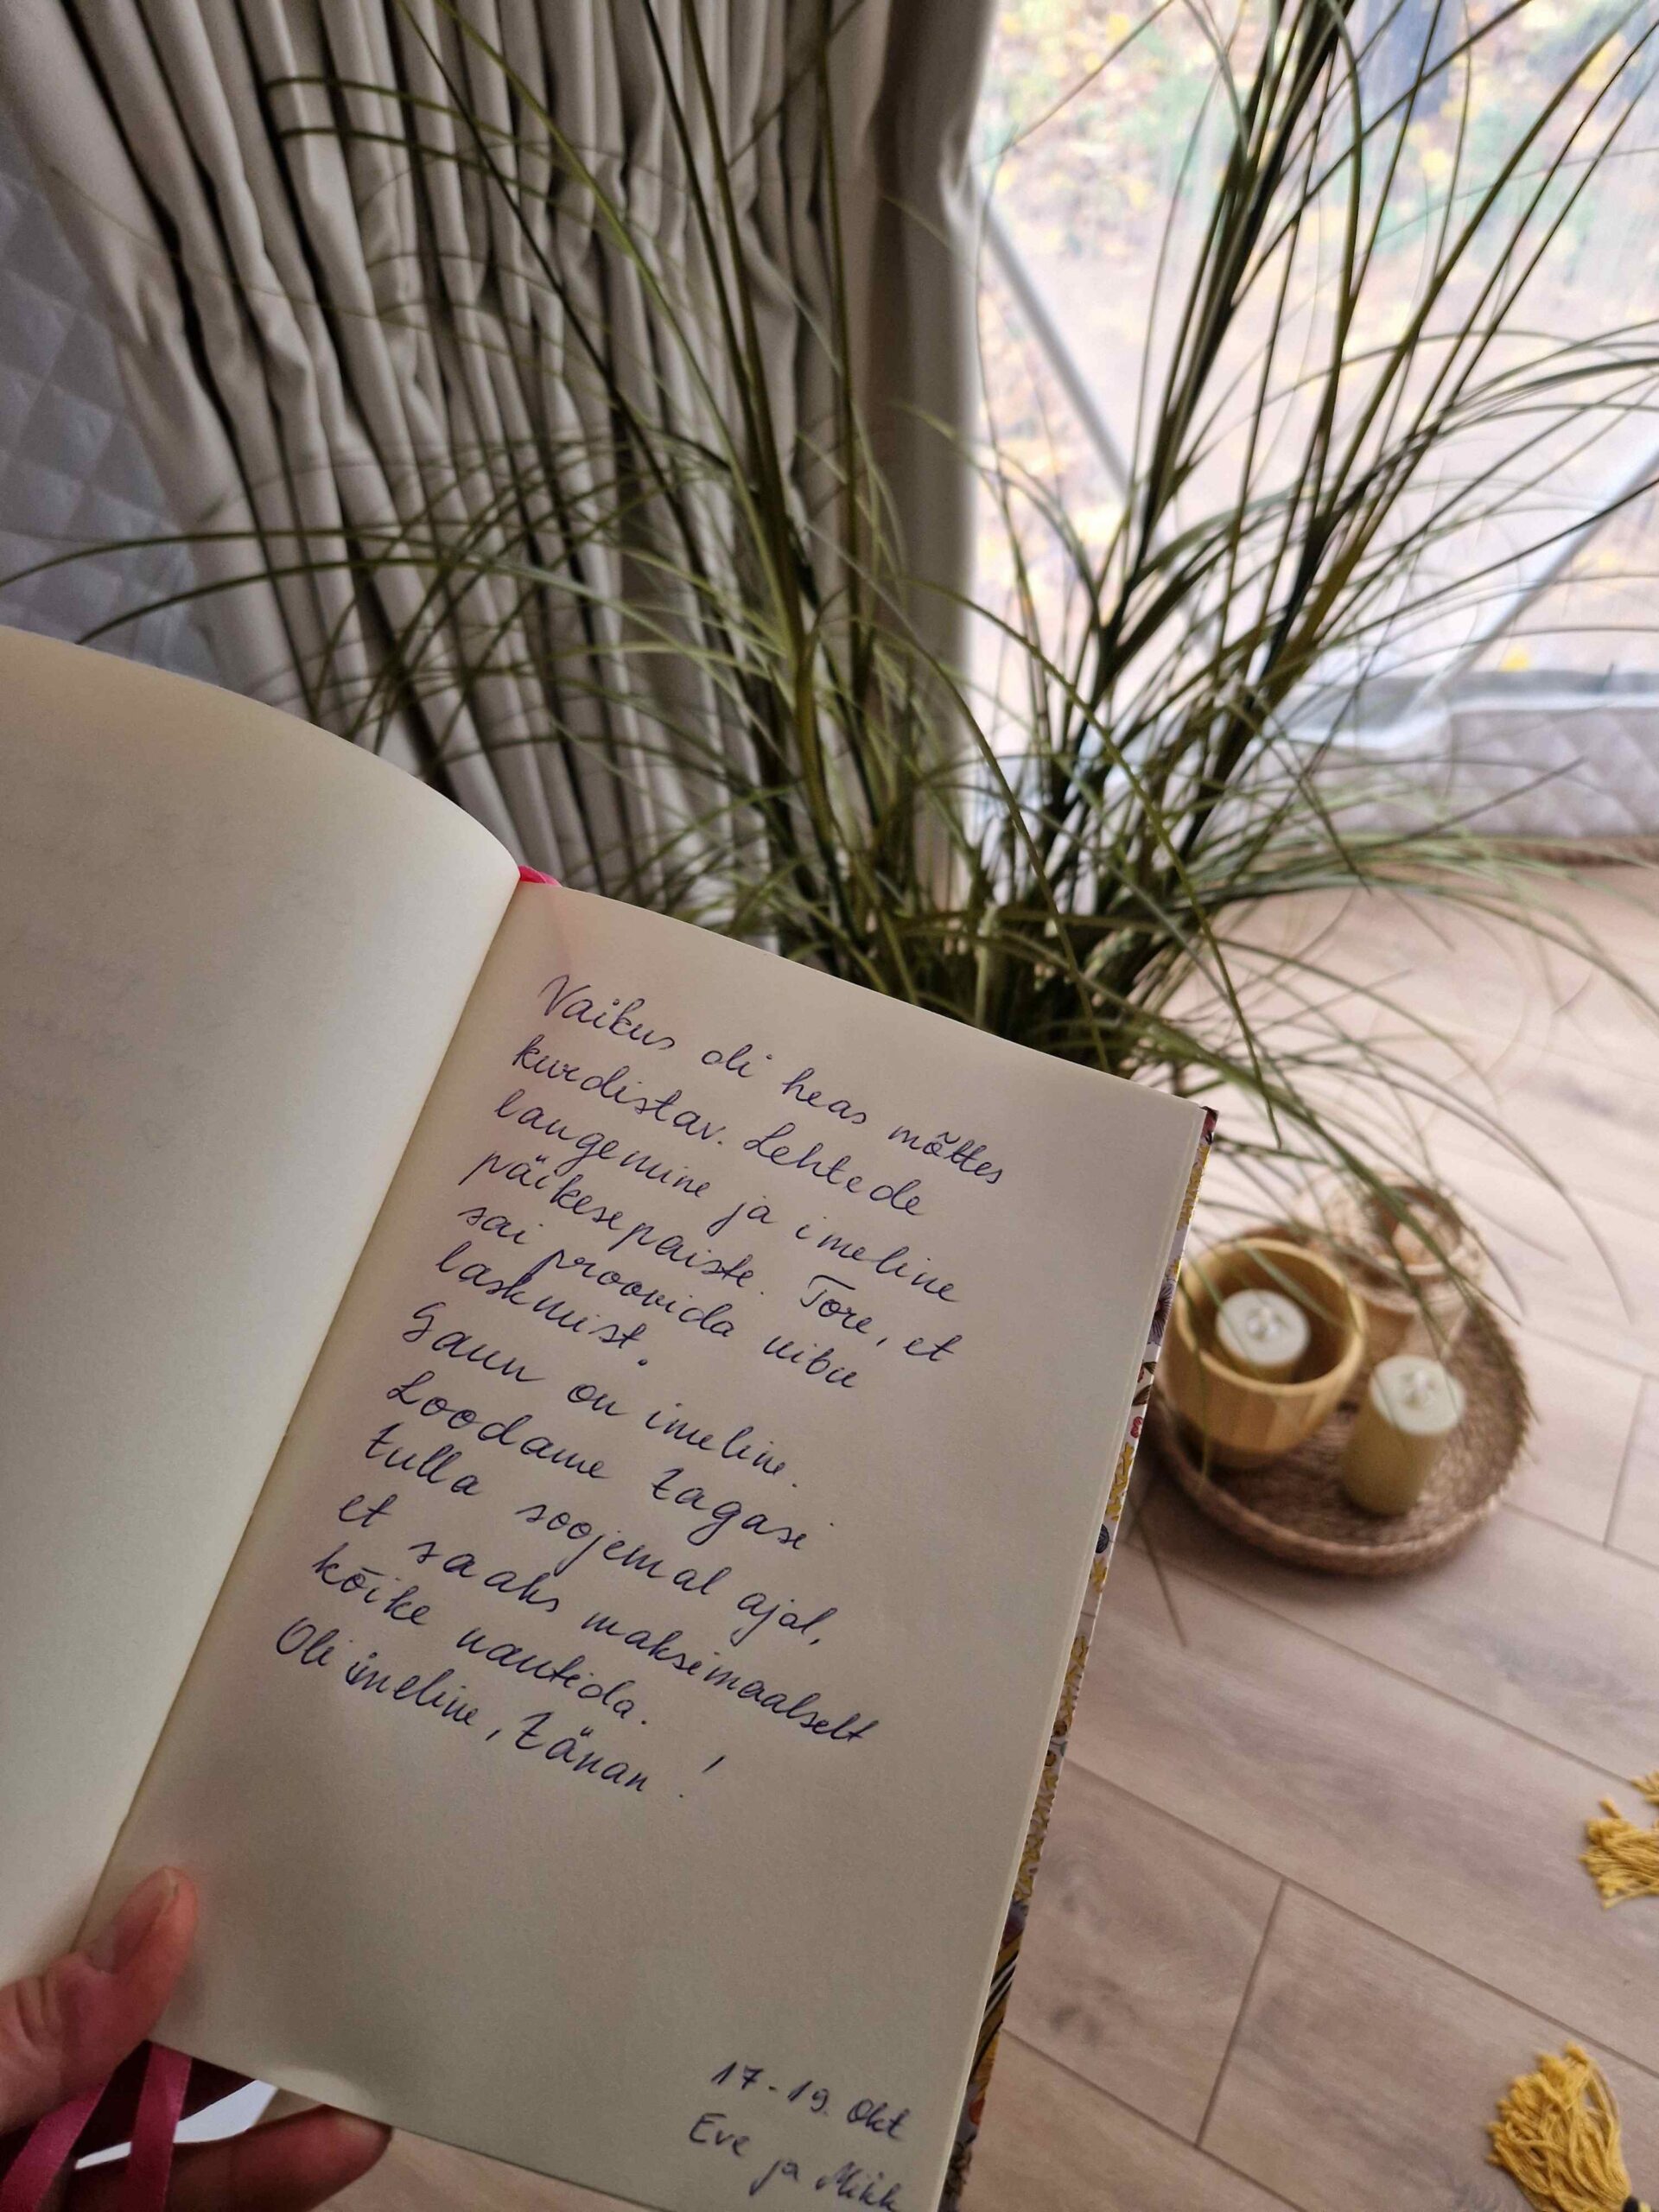 Vaikus oli heas mõttes
kurdistav. Lehtede
langemine ja imeline
päikesepaiste. Tore, et
sai proovida vibu
laskmist.
Saun on imeline.
Loodame tagasi
tulla soojemal ajal,
et saaks maksimaalselt
kõike nautida.
Oli imeline, tänan !
17-19. Okt
Eve ja Mikk